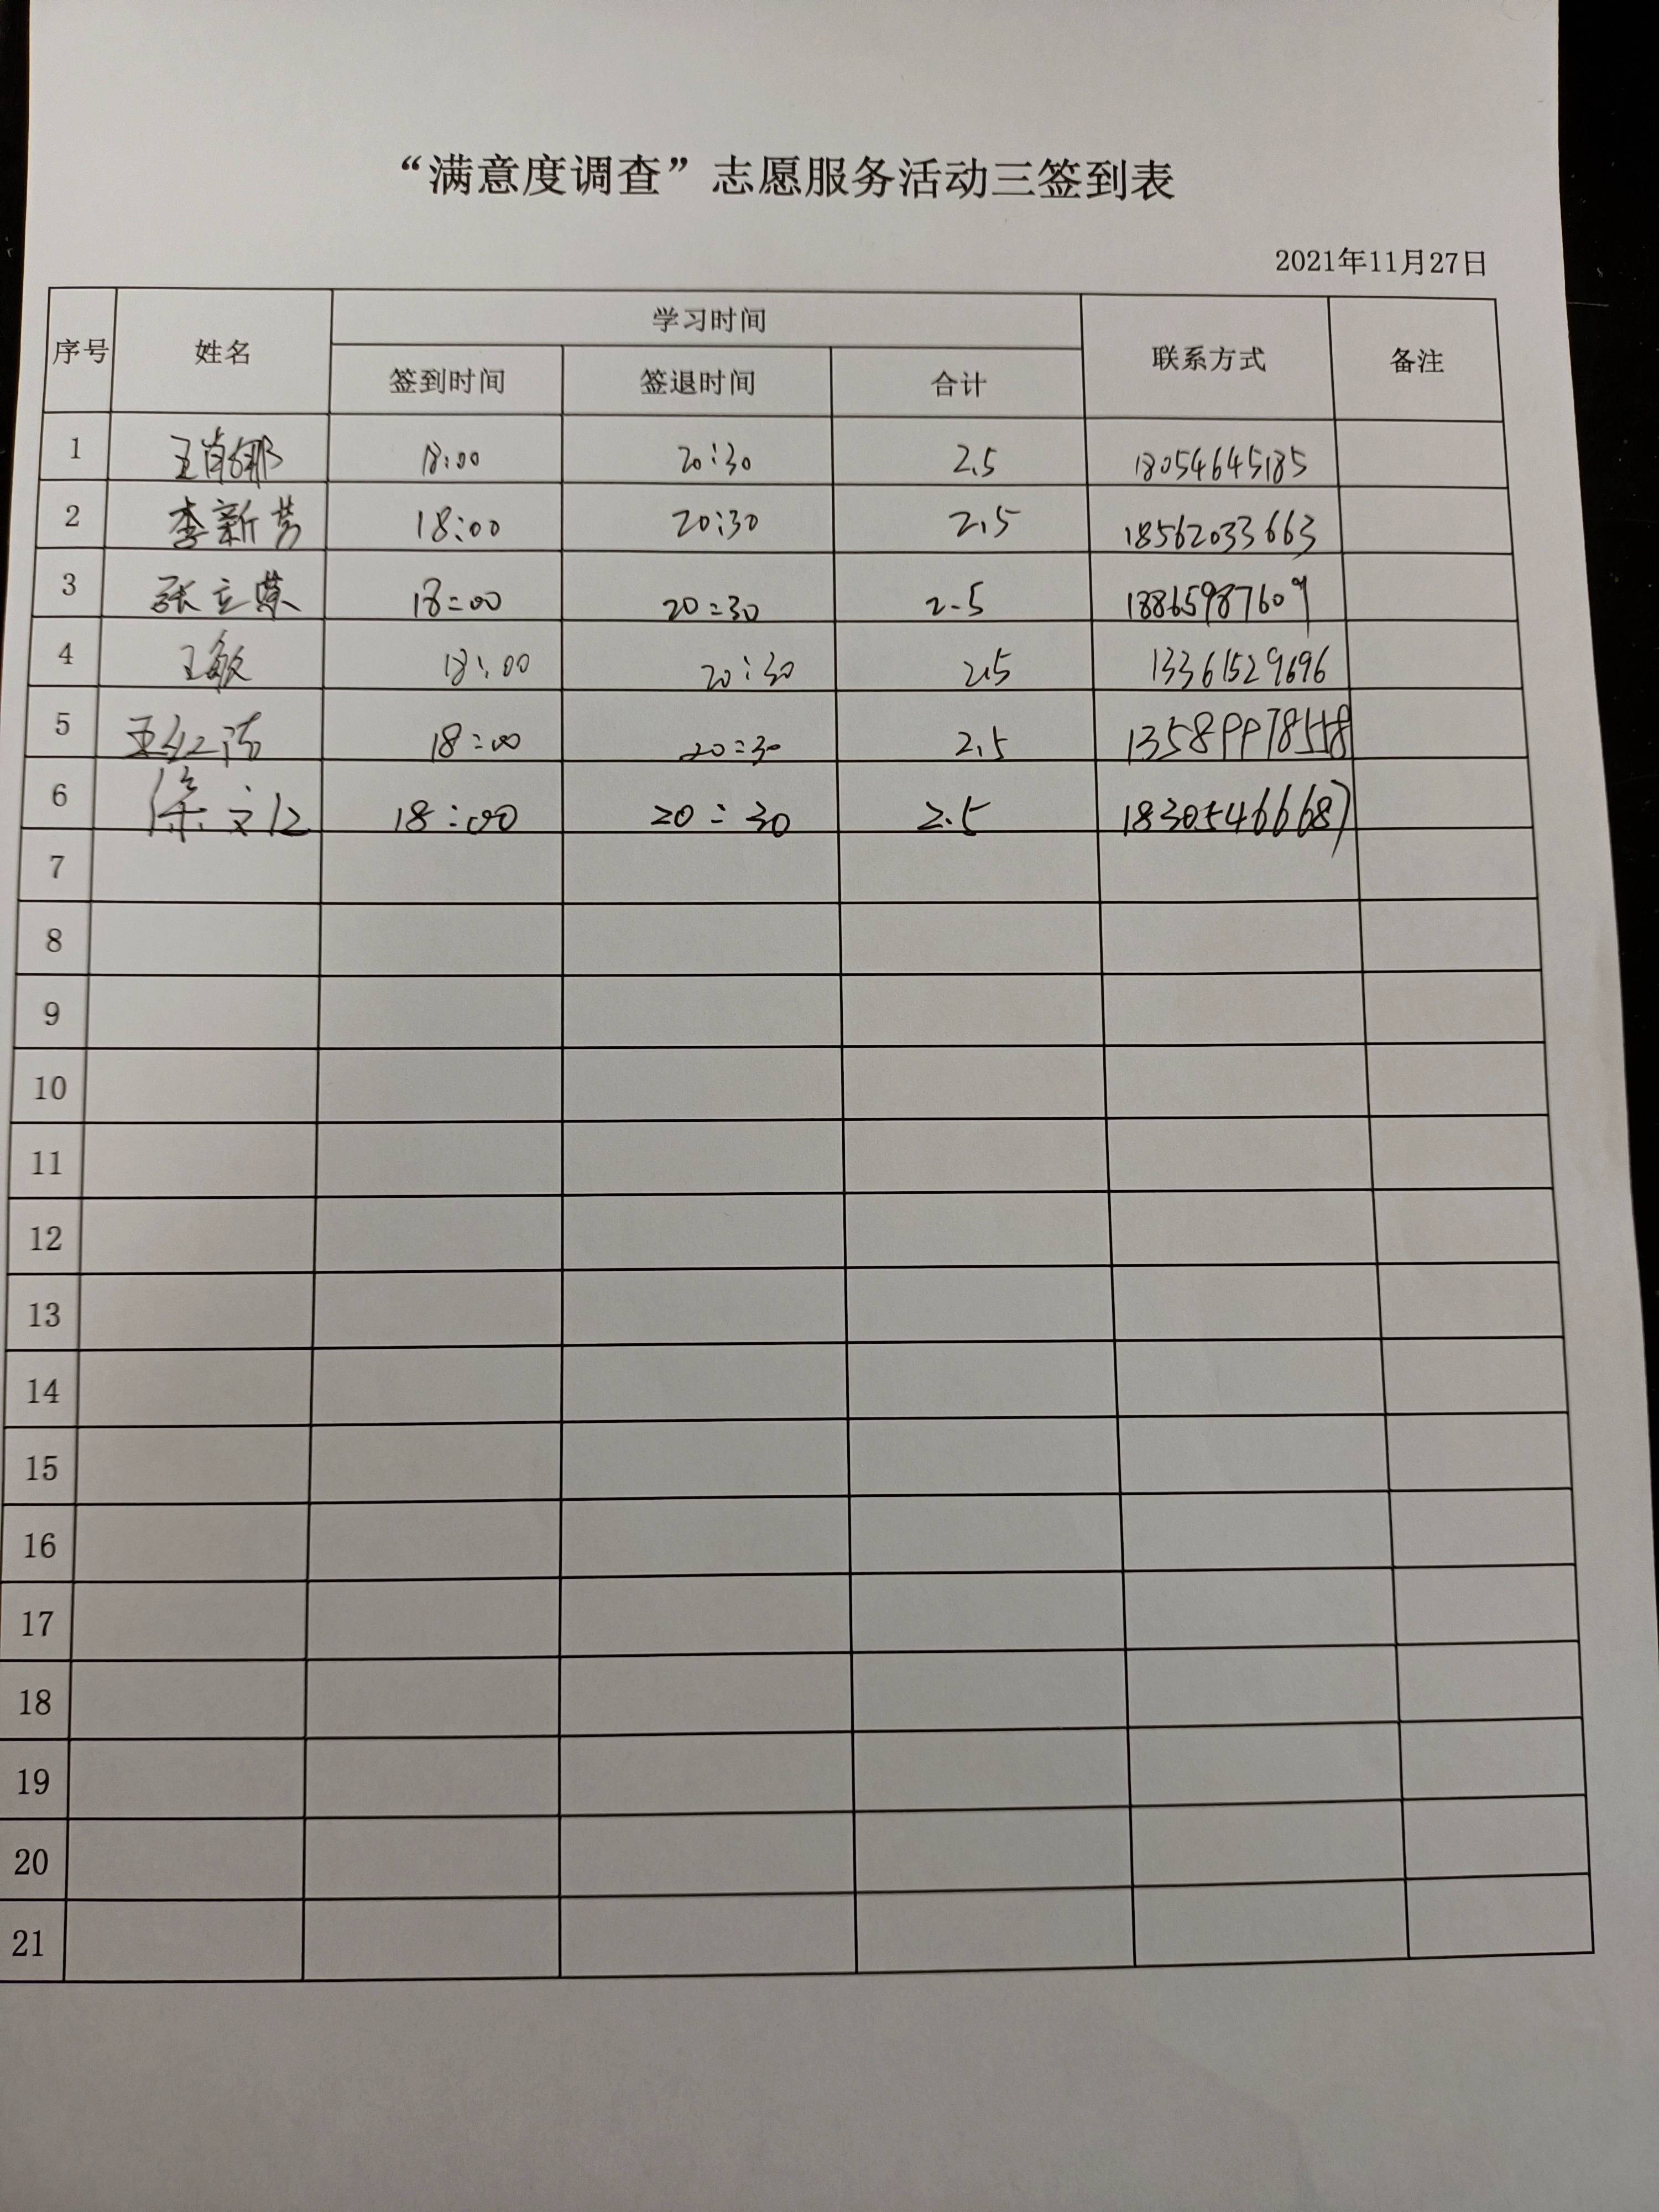 “满意度调查”志愿服务活动三签到表
2021年11月27日
序号 姓名 学习时间 联系方式 备注
签到时间 签退时间 合计
1 王肖娜 18:00 20:30 2.5 18054645185
2 李新芳 18:00 20:30 2.5 18562033663
3 张立荣 18:00 20:30 2.5 18865987609
4 王敏 18:00 20:30 2.5 13361529696
5 18:00 20:30 2.5
6 徐文江 18:00 20:30 2.5 18305466687
7
8
9
10
11
12
13
14
15
16
17
18
19
20
21